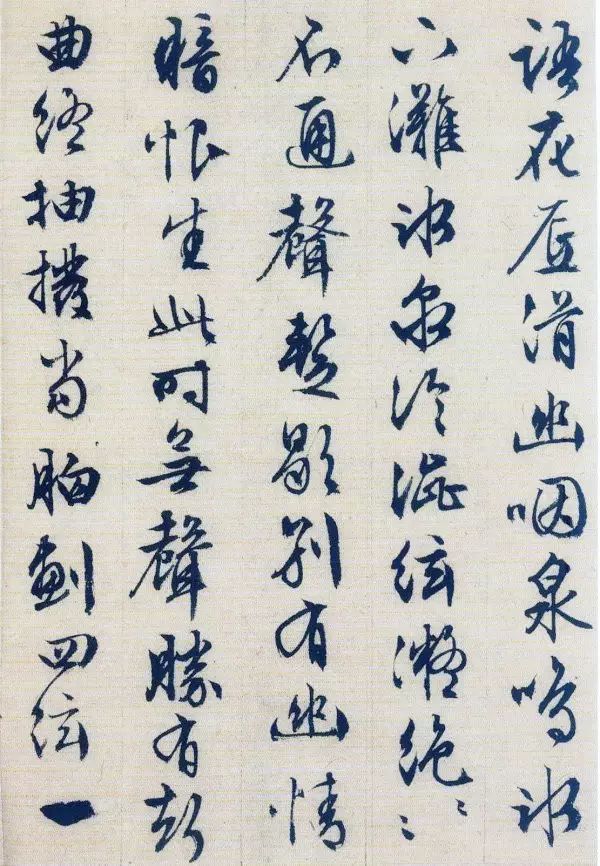 語花底滑幽咽泉鳴冰
下灘冰泉冷澀絃凝絕〻〻
不通聲暫歇別有幽情
暗恨生此時無聲勝有聲
曲終抽撥當胸劃四弦一